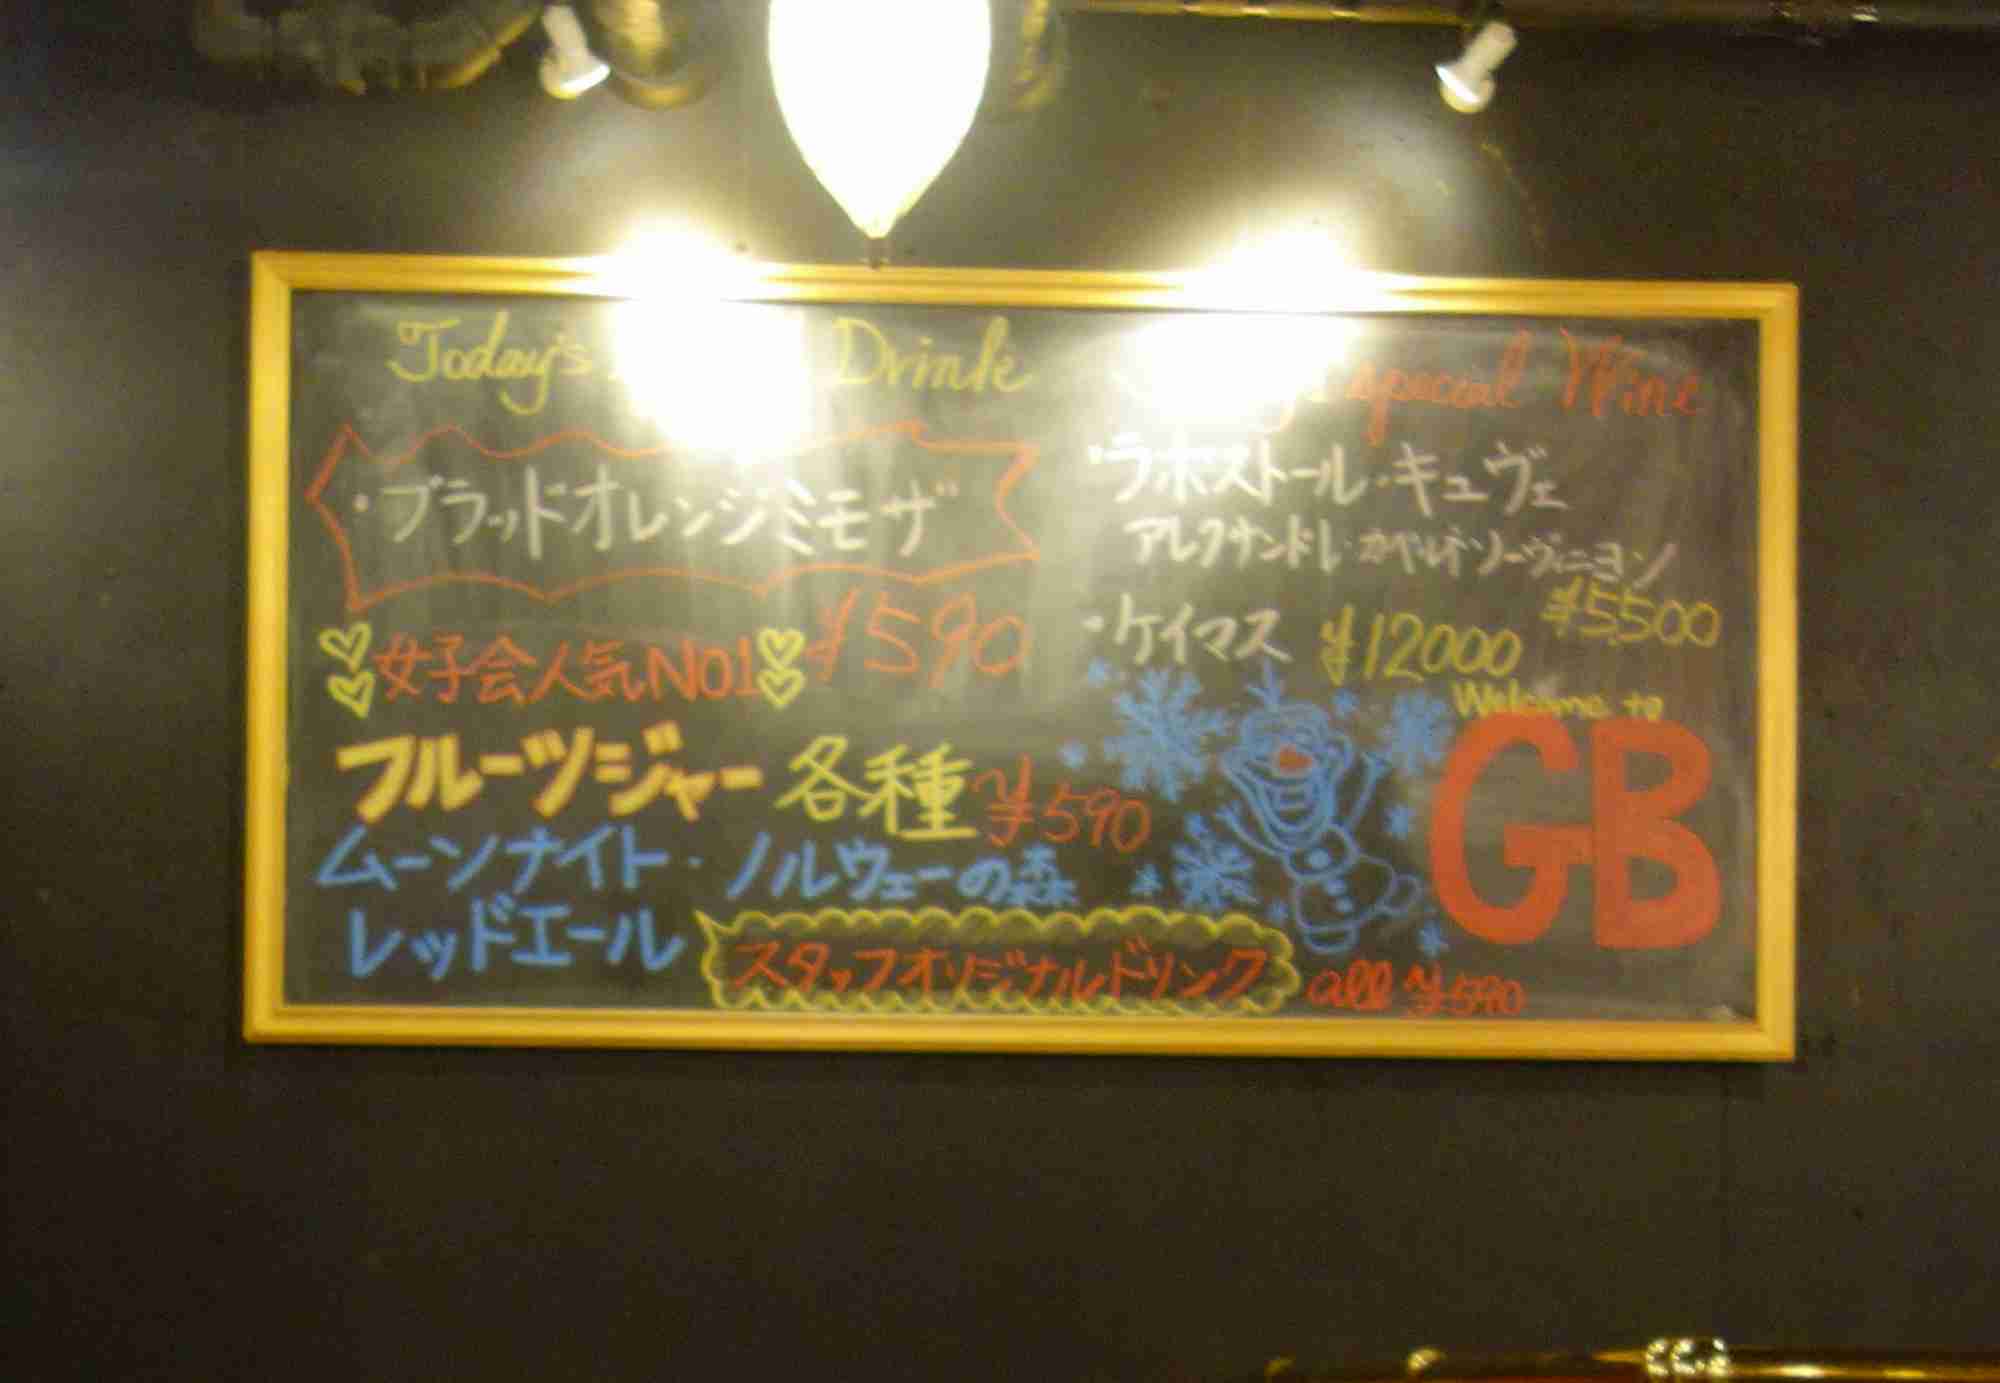 Today's Drink
・ブラッドオレンジミモザ
¥590
女子会人気NO1
フルーツジャー 各種 ¥590
ムーンナイト・ノルウェーの森
レッドエール
スタッフオリジナルドリンク all ¥590
special Wine
・ラポストール・キュヴェ
アレクサンドル・カベルネ・ソーヴィニヨン
¥5,500
・ケイマス ¥12000
Welcome to
GB